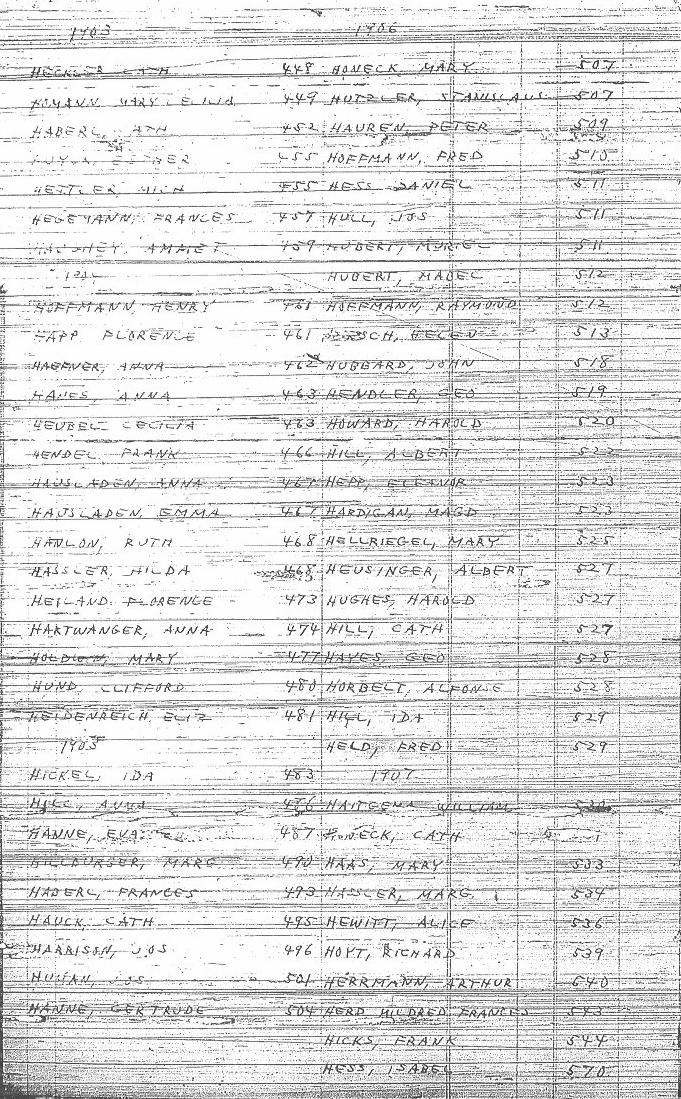 1903
HECKLER CATH 448
HOMANN MARY CECILIA 449
HABERL, CATH 452
ESTHER 455
HETTLER, MICH 455
HEGEMANN, FRANCES 457
HAUGHEY, AMMET 459
HOFFMANN, HENRY 461
HAPP FLORENCE 461
HAEFNER, ANNA 462
HANES, ANNA 463
HEUBEL CECILIA 463
HENDEL, FRANK 466
HAUSLADEN, ANNA 467
HAUSLADEN, EMMA 467
HANLON, RUTH 468
HASSLER, HILDA 468
HEILAND FLORENCE 473
HARTWANGER, ANNA 474
MARY 477
HUND, CLIFFORD 480
HEIDENREICH, ELIZ 481
1905
HICKEL, IDA 483
HILL, ANNA 486
HANNE, EVA 487
HILLBURGER, MARG 490
HABERL, FRANCES 493
HAUCK, CATH 495
HARRISON, JOS 496
JOS 501
HANNE, GERTRUDE 504
1906
HONECK, MARY 507
HUTZLER, STANISLAUS 507
HAUREN, PETER 509
HOFFMANN, FRED 510
HESS DANIEL 511
HULL, JOS 511
HUBERT, MURIEL 511
HUBERT, MABEL 512
HOFFMANN, RAYMOND 512
HELEN 513
HUBBARD, JOHN 518
HENDLER, GEO 519
HOWARD, HAROLD 520
HILL, ALBERT 522
HEPP, ELEANOR 523
HARDIGAN, MAGD 523
HELLRIEGEL, MARY 525
HEUSINGER, ALBERT 527
HUGHES, HAROLD 527
HILL, CATH 527
HAYES, GEO 528
HORBELT, ALFONSE 528
HILL, IDA 529
HELD, FRED 529
1907
HAITGEMA WILLIAM
HONECK, CATH
HAAS, MARY 533
HASSLER, MARG. 534
HEWITT, ALICE 536
HOYT, RICHARD 539
HERRMANN, ARTHUR 540
HERD MILDRED FRANCES 543
HICKS, FRANK 544
HESS, ISABEL 570